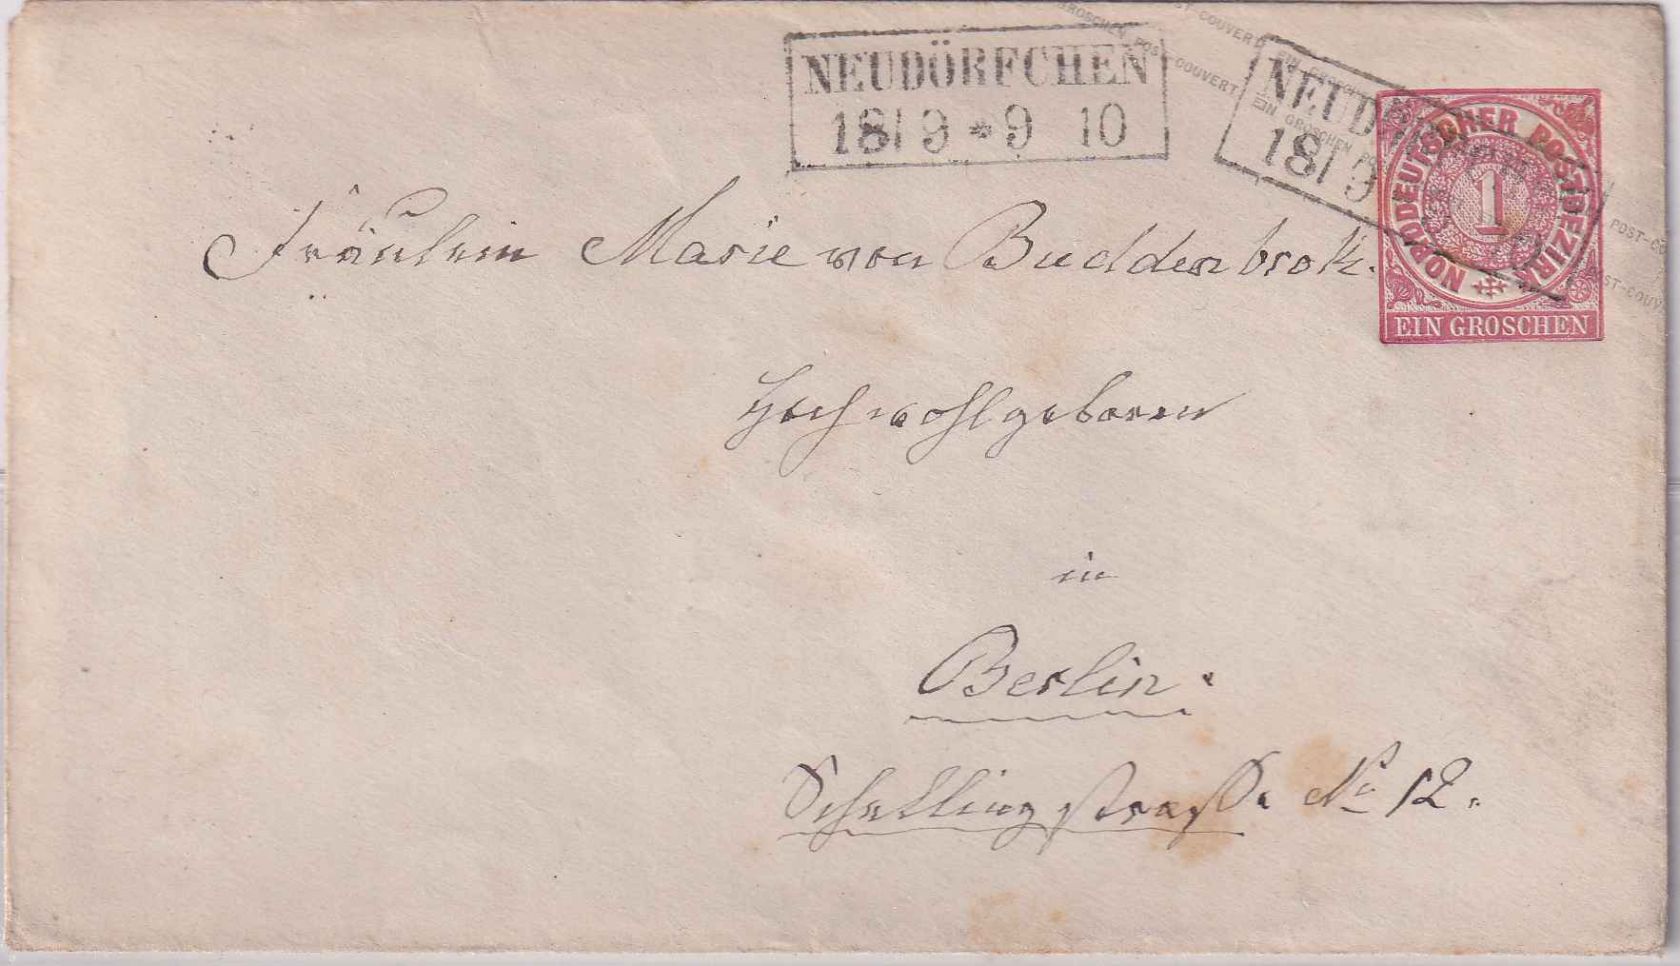 NEUDÖRFCHEN
18/9 * 9 10
NEUD
18/9
NORDDEUTSCHER POSTBEZIRK
1
EIN GROSCHEN
EIN GROSCHEN POST-COUVERT
Fräulein Marie von Buddenbrok.
Hochwohlgeboren
in
Berlin.
Schellingstraße. No 12.